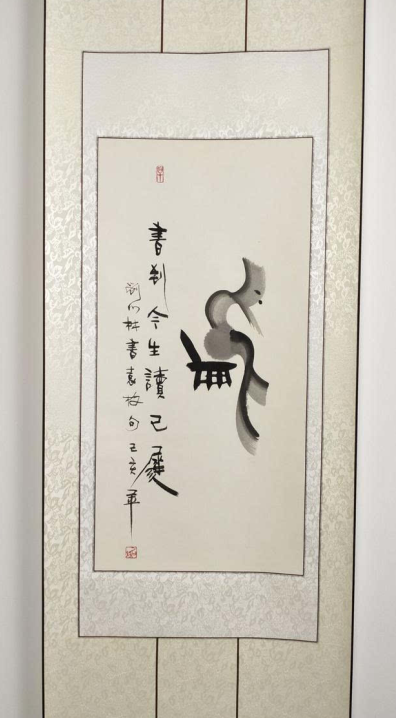 書到今生讀已遲
劉以林書袁枚句己亥年